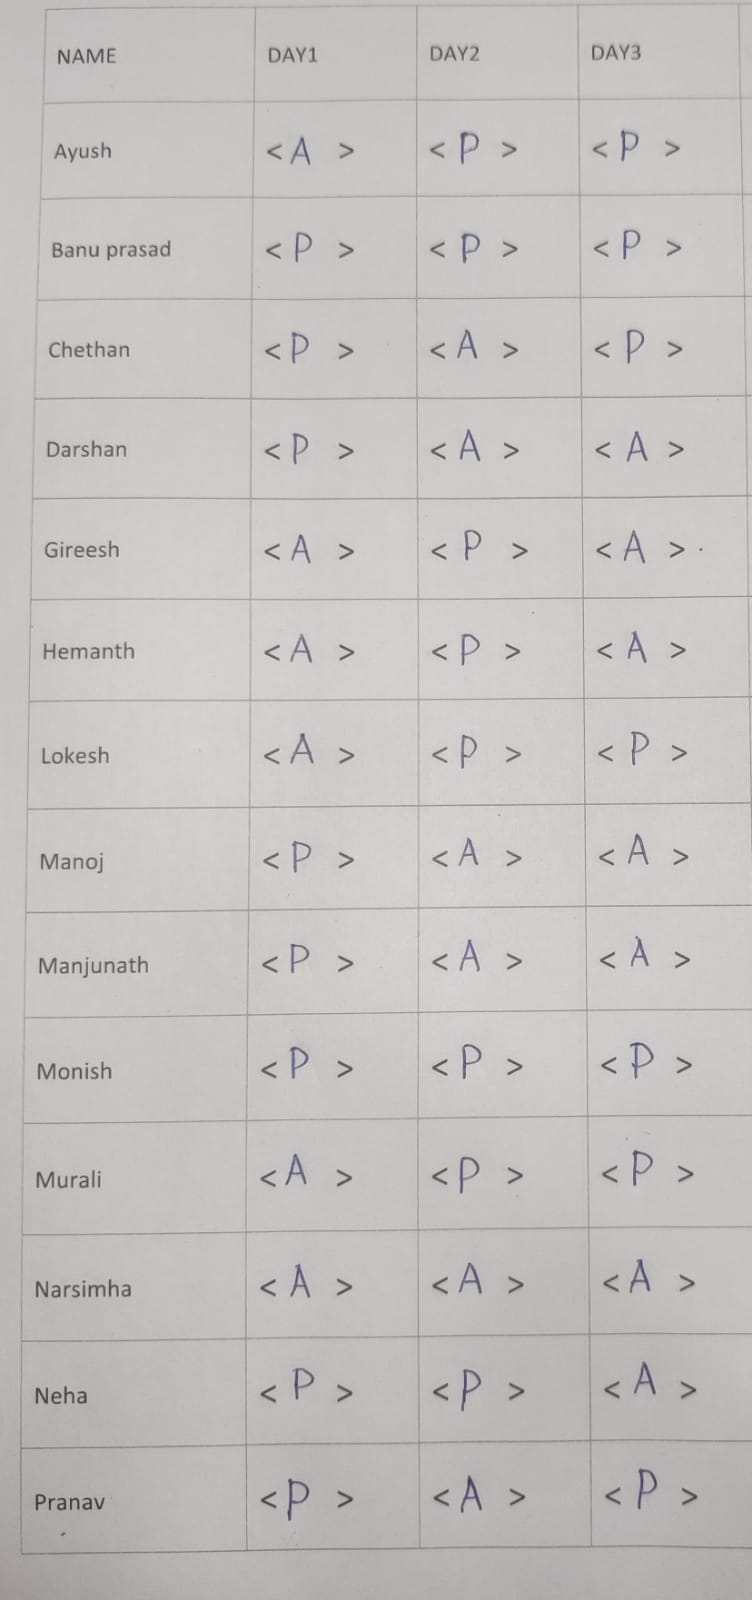 NAME DAY1 DAY2 DAY3
Ayush < A > < P > < P >
Banu prasad < P > < P > < P >
Chethan < P > < A > < P >
Darshan < P > < A > < A >
Gireesh < A > < P > < A >
Hemanth < A > < P > < A >
Lokesh < A > < P > < P >
Manoj < P > < A > < A >
Manjunath < P > < A > < A >
Monish < P > < P > < P >
Murali < A > < P > < P >
Narsimha < A > < A > < A >
Neha < P > < P > < A >
Pranav < P > < A > < P >